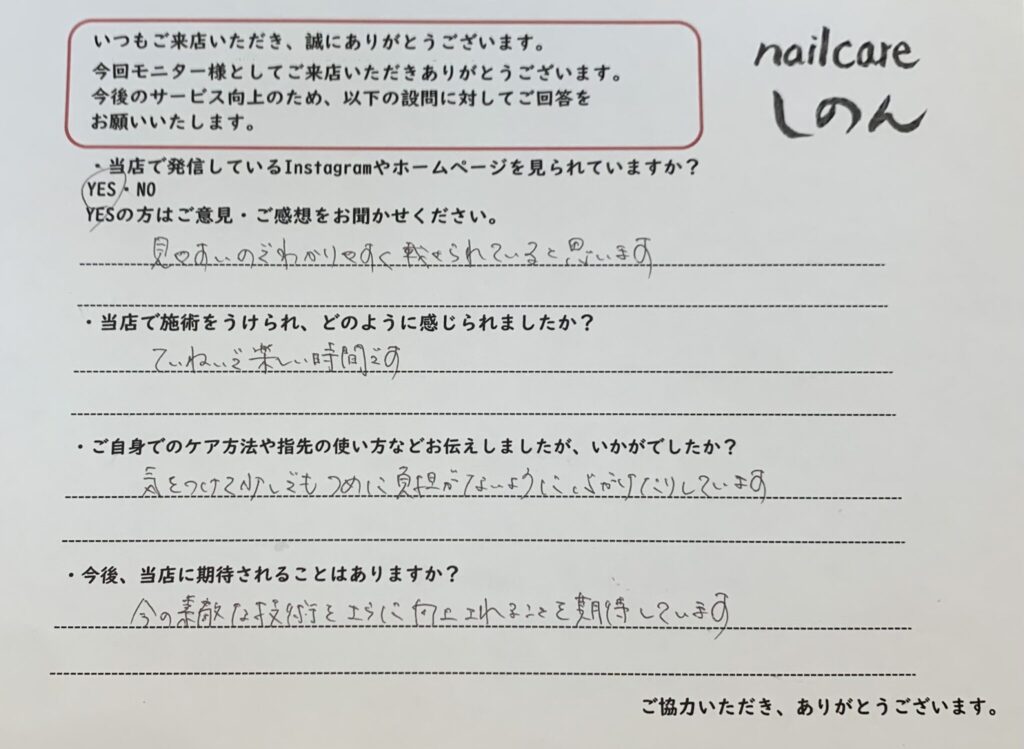 いつもご来店いただき、誠にありがとうございます。
今回モニター様としてご来店いただきありがとうございます。
今後のサービス向上のため、以下の設問に対してご回答を
お願いいたします。
nailcare
しのん
・当店で発信しているInstagramやホームページを見られていますか？
YES・NO
YESの方はご意見・ご感想をお聞かせください。
見やすいのでわかりやすく載せられていると思います
・当店で施術をうけられ、どのように感じられましたか？
ていねいで楽しい時間です
・ご自身でのケア方法や指先の使い方などお伝えしましたが、いかがでしたか？
気をつけて少しでもつめに負担がないように心がけたりしています
・今後、当店に期待されることはありますか？
今の素敵な技術をさらに向上されることを期待しています
ご協力いただき、ありがとうございます。